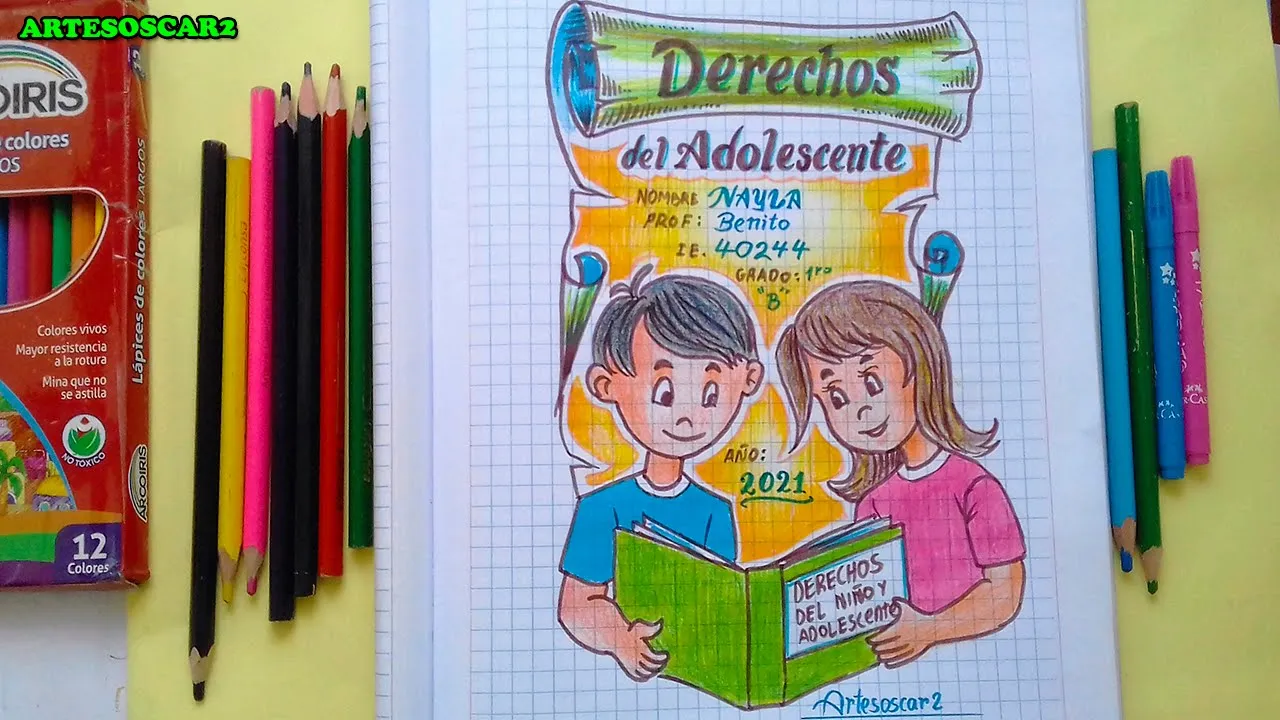 ARTESOSCAR2
OIRIS
colores
OS
Colores vivos
Mayor resistencia
a la rotura
Mina que no
se astilla
NO TÓXICO
12
Colores
Lápices de colores LARGOS
ARCOIRIS
Derechos
del Adolescente
NOMBRE NAYLA
PROF: Benito
IE. 40244
GRADO: 1ro
"B"
AÑO:
2021
DERECHOS
DEL NIÑO Y
ADOLESCENTE
Artesoscar2